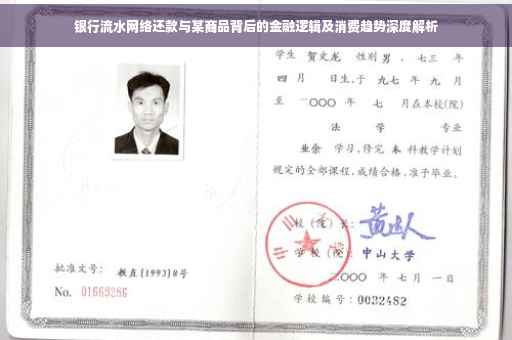 银行流水网络还款与某商品背后的金融逻辑及消费趋势深度解析
学生 贺文龙 性别 男 、七三 年
四 月 日生,于 九七 年 九 月
至 二〇〇〇 年 七 月在本校(院)
法 学 专业
业余 学习,修完 本 科教学计划
规定的全部课程,成绩合格,准予毕业。
校(院)长:
学校(院): 中山大学
二〇〇〇 年 七 月 一 日
批准文号: 教直[1993]8号
No. 01663286
学校编号: 0032482